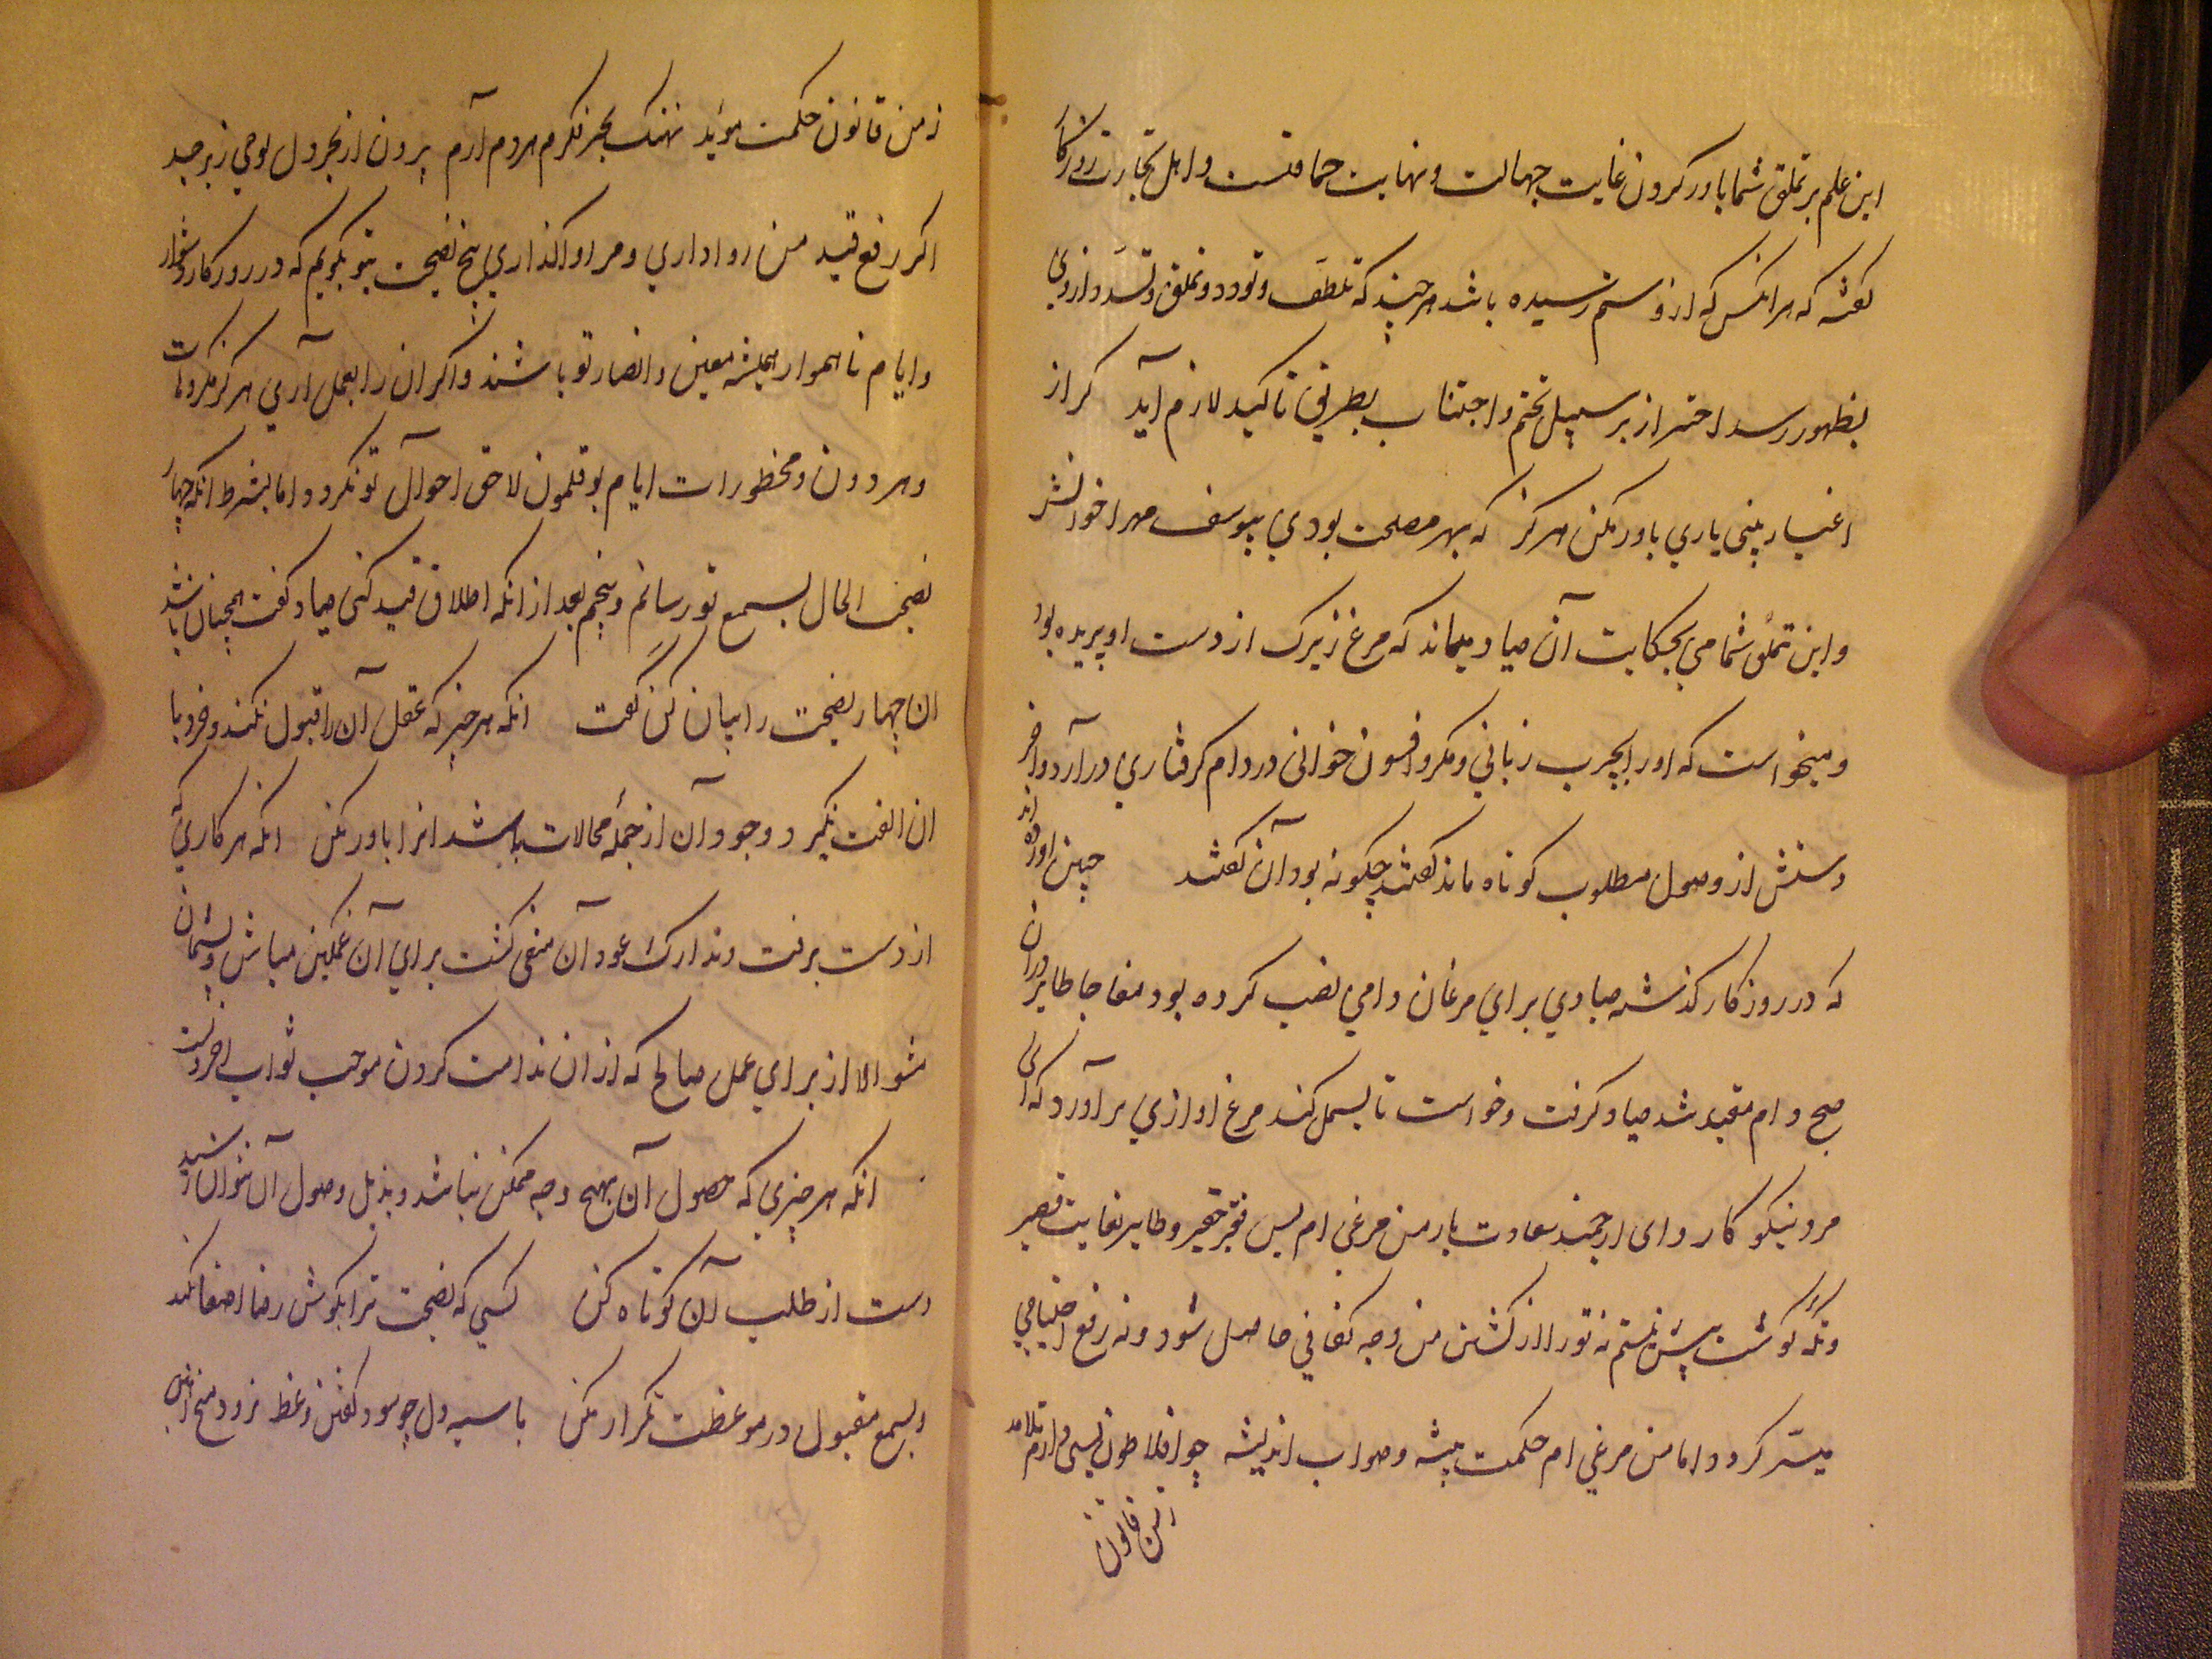 این علم بر تملق شما باور کردن غایت جهالت و نهایت حماقتست و اهل تجارت روزگار
گفته که هر انکس که ازو ستم رسیده باشد هر چند که تلطف و تودد و تملق و تسدد از وی
بظهور رسد احتراز بر سبیل تختم و اجتناب بطریق تاکید لازم آید کر از
اغیار بینی یاری باور مکن هرکز که بهر مصلحت بودی بیوسف مهر اخوانش
و این تملق شما می بحکایت آن صیاد میماند که مرغ زیرک از دست او پریده بود
و میخواست که او را بچرب زبانی و مکر و افسون خوانی در دام کرفتاری در آرد و اخر
دستش از وصول مطلوب کوتاه ماند کفتند چکونه بود آن کفتند چنین اورده اند
که در روزکار کذشته صیادی برای مرغان دامی نصب کرده بود مفاجا طایر دران
صبح دام مقید شد صیاد کرفت و خواست تا بسمل کند مرغ اوازی بر آورد که ای
مرد نیکو کار و ای ارجمند سعادت یار من مرغی ام بس فقیر حقیر و طایر بغایت قصیر
و تکه کوشت بیش نیستم نه تورا از کشتن من وجه کفافی حاصل شود و نه رفع احتیاجی
میسّر کردد اما من مرغی ام حکمت پیشه و صواب اندیشه چو افلاطون بسی دارم تلامذ
زمن قانون
زمن قانون حکمت موید نهنک بحر فکرم مردم آرم برون از بحر دل لوحی زبرجد
اکر رفع قید من روا داری و مرا واکذاری پنج نصیحت بتو بکویم که در روزکار دشوار
و ایام ناهموار همیشه معین و انصار تو باشند و اکر ان را بعمل آری هرکز مکروهات
دهر دون و محظورات ایام بوقلمون لاحق احوال تو نکردد اما بشرط انکه چهار
نصیحت الحال بسمع تو رسانم و پنجم بعد از انکه اطلاق قید کنی صیاد کفت همچنان باشد
ان چهار نصیحت را بیان کن کفت انکه هر چیز که عقل آن را قبول نکند و خرد با
ان الفت نکیرد و وجود آن از جمله محالات باشد انرا باور مکن انکه هر کاری که
از دست برفت و تدارک عود آن منفی کشت برای آن غمکین مباش و پشیمان
مشو الا از برای عمل صالح که از ان ندامت کردن موجب ثواب اخرویست
انکه هر چیزی که حصول آن بهیچ وجه ممکن نباشد و بذیل وصول آن نتوان رسید
دست از طلب آن کوتاه کن کسی که نصیحت ترا بکوش رضا اصغا نکند
و بسمع مقبول در موعظت تکرار مکن با سیه دل چه سود کفتن وعظ نرود میخ آهنین